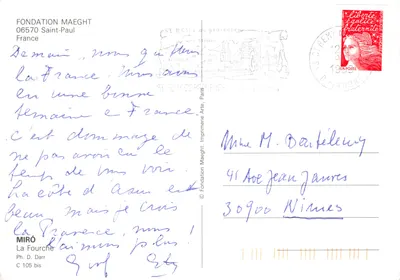 FONDATION MAEGHT
06570 Saint-Paul
France
Demain, nous quittons
la France. Nous avons
eu une bonne
semaine en France.
c'est dommage de
ne pas avoir eu le
temps de vous voir.
La côte d'Azur est
beau, mais je crois
la Provence, nous
l'aimons plus!
MIRÓ
La Fourche
Ph. D. Derr
C 105 bis
© Fondation Maeght. Imprimerie Arte, Paris
Liberté
égalité
fraternité
Mme M. Barthelemy
41 Ave Jean Jaurès
30900 Nimes